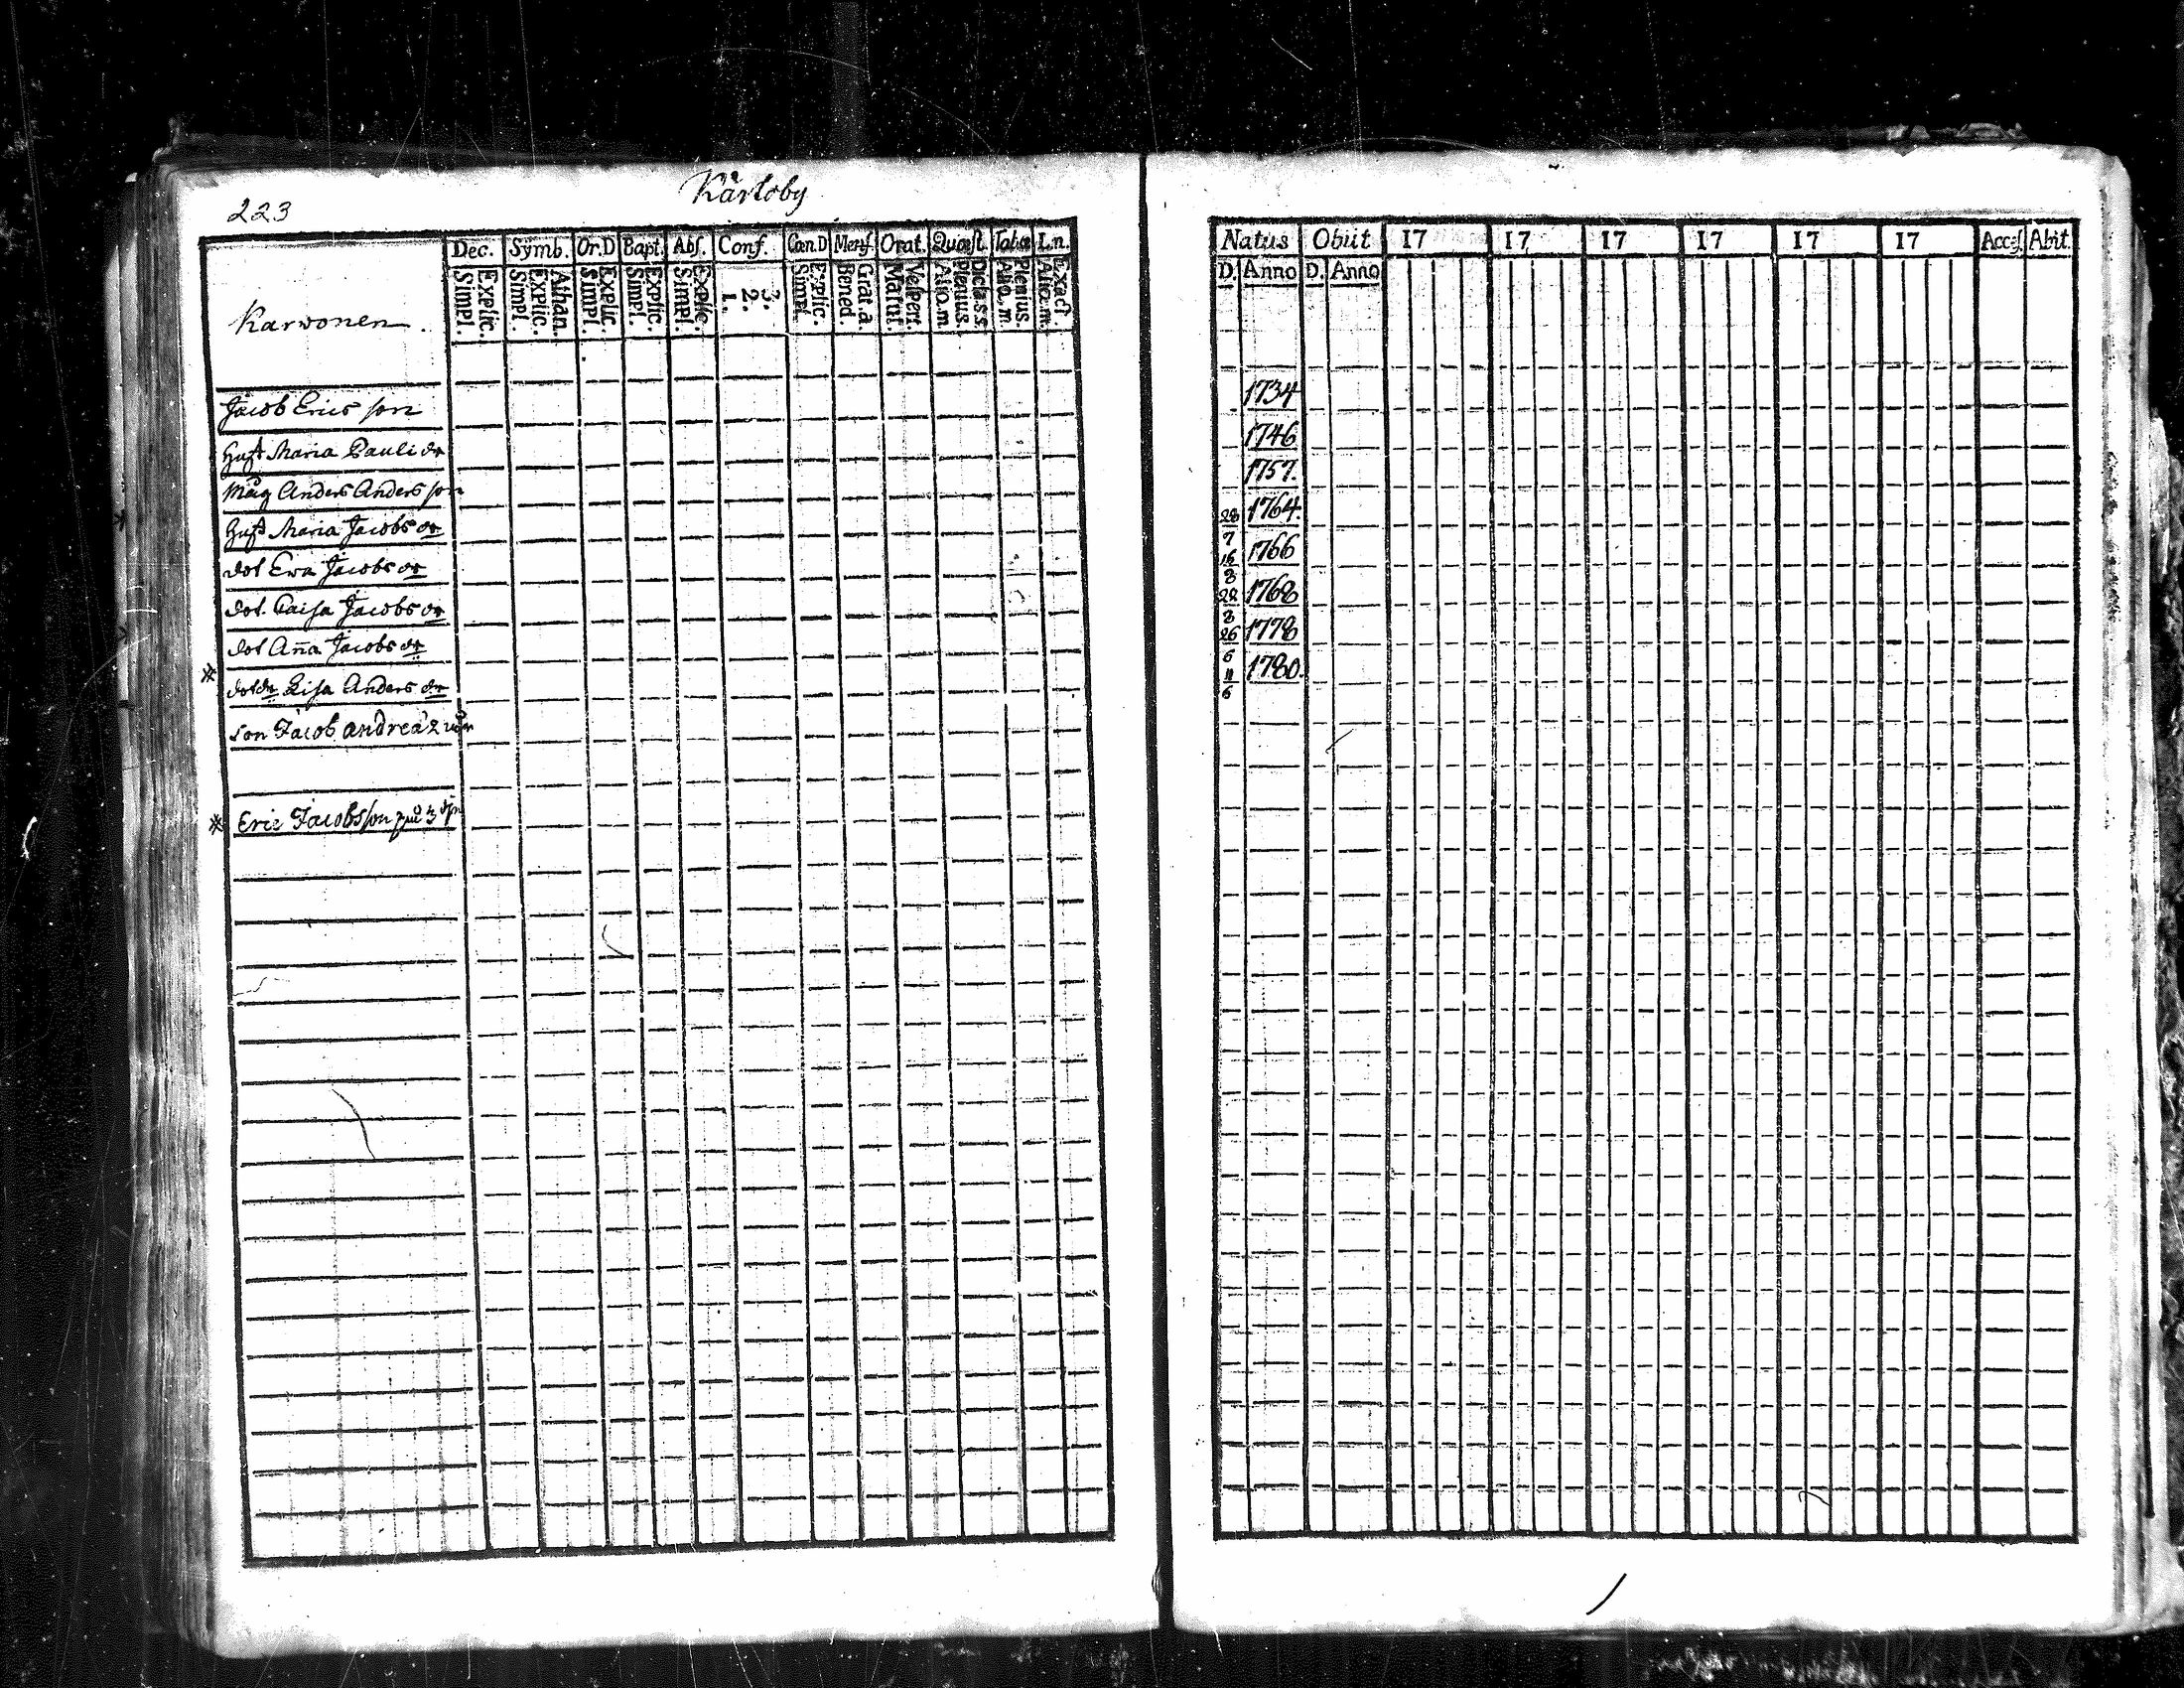 223
Kårtoby
Dec. Symb. Or.D Bapt. Abs. Conf. Cœn.D Mens. Orat. Quæst. Tabæ L.n.
Simpl. Explic. Simpl. Explic. Athan. Simpl. Explic. Simpl. Explic. Simpl. Explic. 1. 2. 3. Simpl. Explic. Bened. Grat.a. Matut. Vespert. Alio.m. Plenius. Dicta.s.s. Alio.m. Plenius. Alio.m. Exact
Karwonen.
Jacob Erics son
Hust Maria Pauli dr
Måg Anders Anders son
Hust Maria Jacobs dr
dot Ewa Jacobs dr
dot. Caisa Jacobs dr
dot Aña Jacobs dr
dotdr Lisa Anders dr
son Jacob andreä 2
Eric Jacobsson 3
Natus Obiit 17 17 17 17 17 17 Access. Abit.
D. Anno D. Anno
1734
1746
1757.
28/7 1764.
16/8 1766
22/8 1768
26/6 1778
11/6 1780.